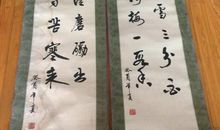 雪三分白
梅一段香
磨礪出
自苦寒来